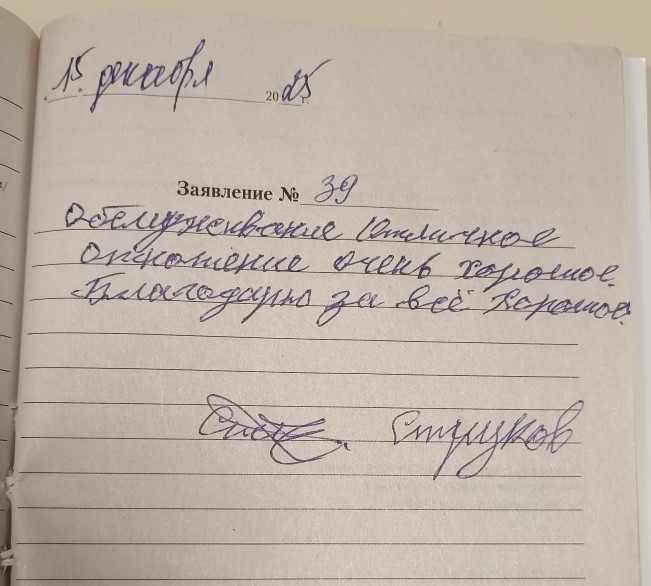 15 декабря 2025 г.
Заявление № 39
Обслуживание Отличное
Отношение очень хорошое.
Благодарю за всё Хорошое.
Струков